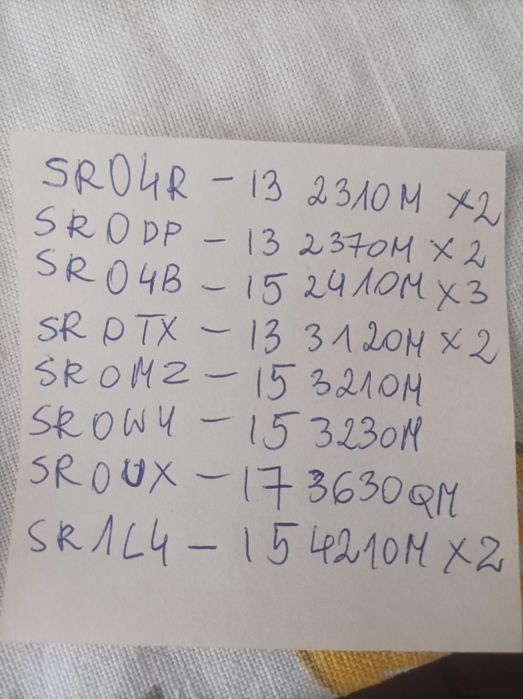 SR04R - 13 2310M x2
SR0DP - 13 2370M x2
SR04B - 15 2410M x3
SR0TX - 13 3120M x2
SR0MZ - 15 3210M
SR0W4 - 15 3230M
SR0UX - 17 3630QM
SR1L4 - 15 4210M x2